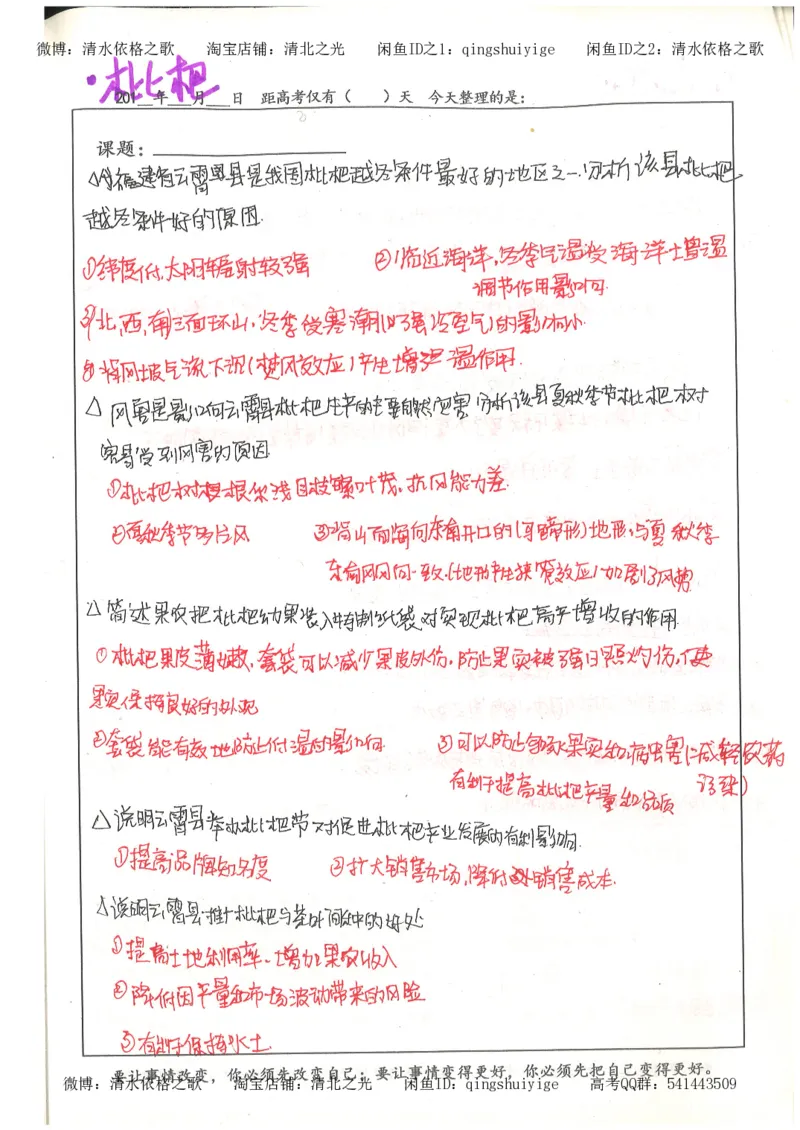 微博：清水依格之歌 淘宝店铺：清北之光 闲鱼ID之1：qingshuiyige 闲鱼ID之2：清水依格之歌
·枇杷
201__年___月___日 距高考仅有（ ）天 今天整理的是：
课题：
△(1)福建省云霄县是我国枇杷越冬条件最好的地区之一.分析该县枇杷
越冬条件好的原因.
①纬度低,太阳辐射较强 ②临近海洋,冬季气温受海洋增温
调节作用影响
③北,西,南三面环山,冬季受寒潮(强冷空气)的影响小.
④背风坡气流下沉(焚风效应)产生增温作用.
△ 风害是影响云霄县枇杷生产的主要自然危害 分析该县夏秋季节枇杷树
容易受到风害的原因
①枇杷树根系浅且枝繁叶茂,抗风能力差.
②夏秋季节多台风 ③背山面海向东南开口的(马蹄形)地形,与夏秋季
东南风风向一致.(地形产生狭管效应)加剧了风势
△ 简述果农把枇杷幼果装入特制纸袋对实现枇杷高产增收的作用.
①枇杷果皮薄嫩,套袋可以减少果皮外伤,防止果实被强日照灼伤,使
果实保持良好的外观
②套袋能有效地防止低温的影响 ③可以防止鸟啄果实和病虫害(减轻农药
有利于提高枇杷产量和品质 污染)
△说明云霄县举办枇杷节对促进枇杷产业发展的有利影响.
①提高品牌知名度 ②扩大销售市场,降低销售成本.
△说明云霄县推广枇杷与茶叶间种的好处
①提高土地利用率、增加果农收入
②降低因产量和市场波动带来的风险
③有利于保持水土
要让事情改变，你必须先改变自己；要让事情变得更好，你必须先把自己变得更好。
微博：清水依格之歌 淘宝店铺：清北之光 闲鱼ID：qingshuiyige 高考QQ群：541443509